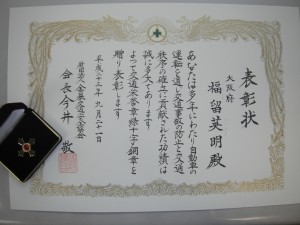 表彰状
大阪府
福留英明殿
あなたは多年にわたり自動車の
運転を通し交通事故の防止と交通
秩序の確立に貢献された功績は
誠に多大であります
よつて交通栄誉章緑十字銅章を
贈り表彰します
平成二十三年九月二十一日
財団法人全日本交通安全協会
会長今井敬